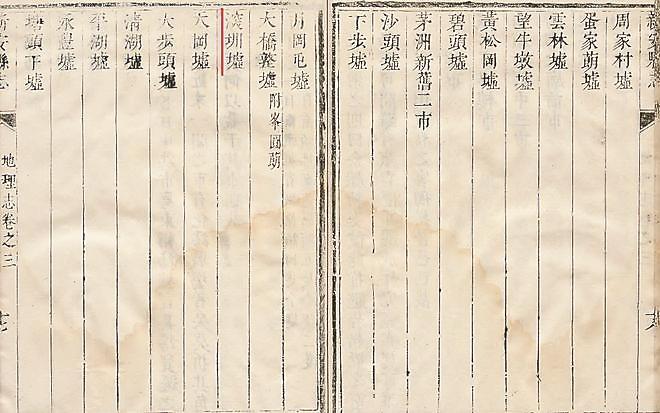 周家村墟
蛋家蓢墟
雲林墟
望牛墩墟
黃松岡墟
碧頭墟
茅洲新舊二市
沙頭墟
下步墟
月岡屯墟
大橋墪墟 附峯園蓢
深圳墟
天岡墟
大步頭墟
清湖墟
平湖墟
永豐墟
塘頭下墟
安縣志 地理志卷之三